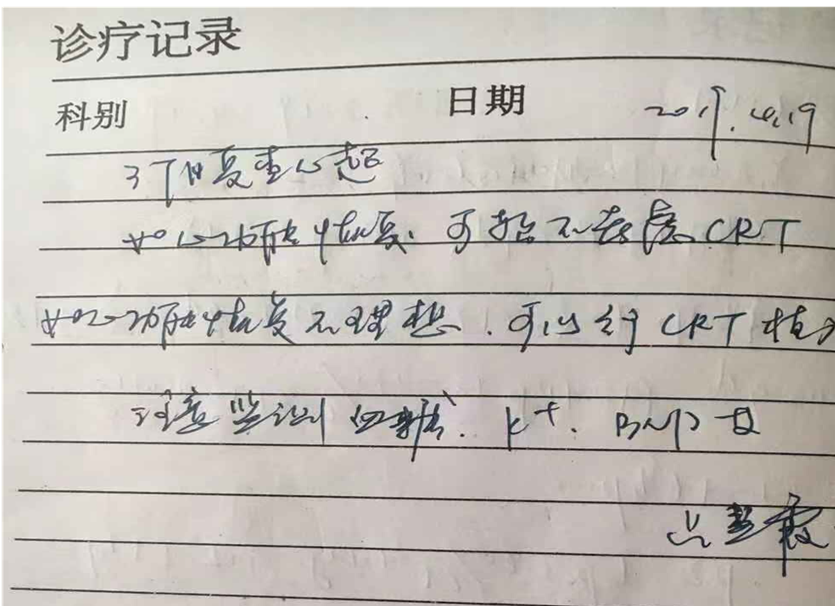 诊疗记录
科别 日期 2019.10.19
3个月复查心超
如心功能恢复.可暂不考虑CRT
如心功能恢复不理想.可以行CRT植入
注意监测血糖、K+、BNP